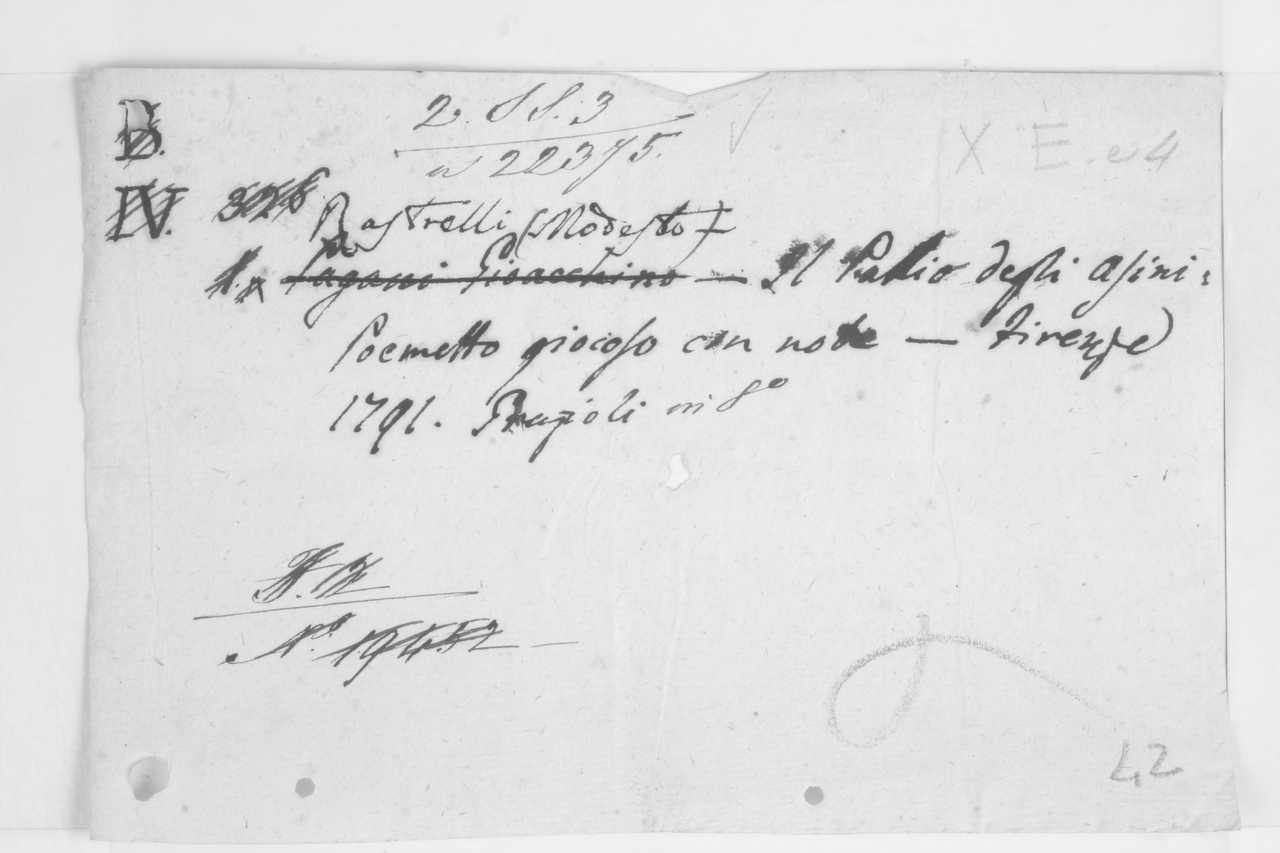 B.
2. S S. 3
22375.
X E. e 4
IV.
Rastrelli (Modesto)
Pagani Gioacchino — Il Pallio degli Asini:
Poemetto giocoso con note — Firenze
1791. Pagani in 8º
Nº. 19452
42